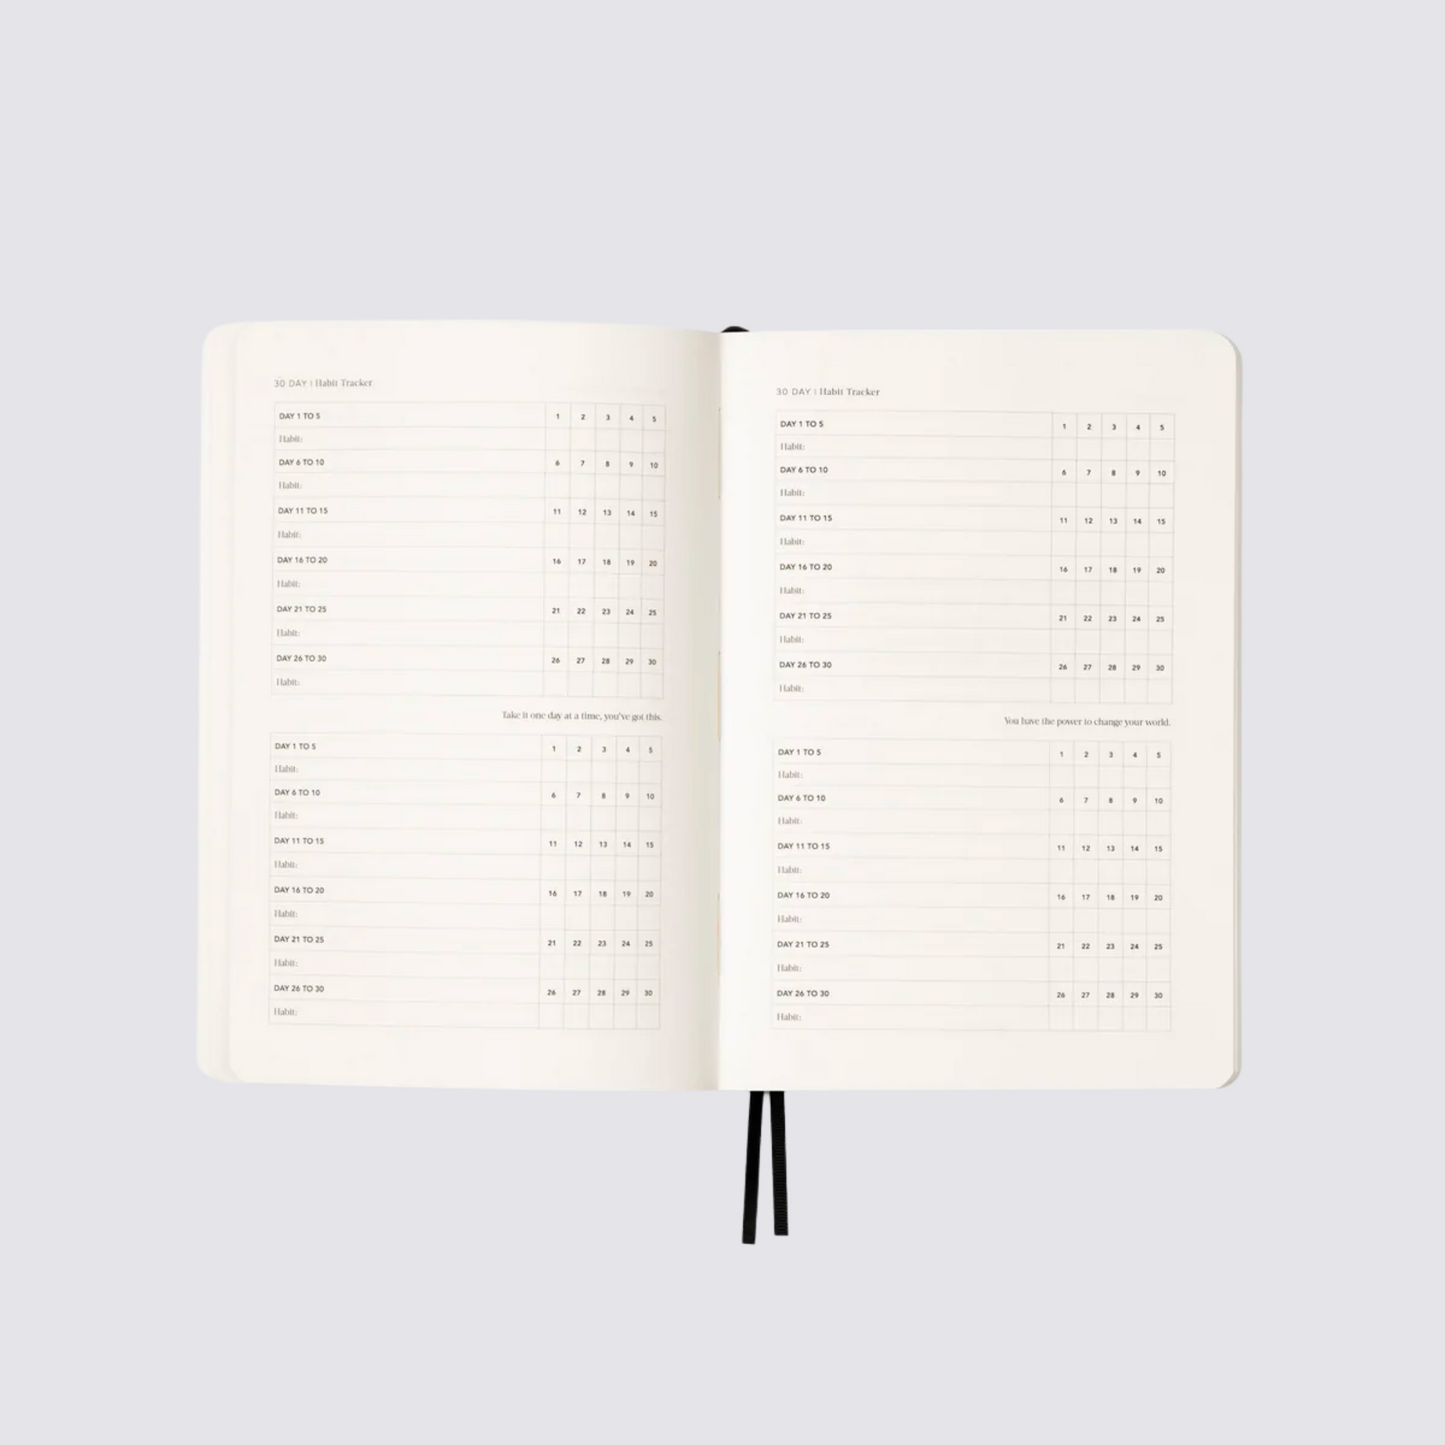 30 DAY | Habit Tracker
DAY 1 TO 5 1 2 3 4 5
Habit:
DAY 6 TO 10 6 7 8 9 10
Habit:
DAY 11 TO 15 11 12 13 14 15
Habit:
DAY 16 TO 20 16 17 18 19 20
Habit:
DAY 21 TO 25 21 22 23 24 25
Habit:
DAY 26 TO 30 26 27 28 29 30
Habit:
Take it one day at a time, you've got this.
DAY 1 TO 5 1 2 3 4 5
Habit:
DAY 6 TO 10 6 7 8 9 10
Habit:
DAY 11 TO 15 11 12 13 14 15
Habit:
DAY 16 TO 20 16 17 18 19 20
Habit:
DAY 21 TO 25 21 22 23 24 25
Habit:
DAY 26 TO 30 26 27 28 29 30
Habit:
30 DAY | Habit Tracker
DAY 1 TO 5 1 2 3 4 5
Habit:
DAY 6 TO 10 6 7 8 9 10
Habit:
DAY 11 TO 15 11 12 13 14 15
Habit:
DAY 16 TO 20 16 17 18 19 20
Habit:
DAY 21 TO 25 21 22 23 24 25
Habit:
DAY 26 TO 30 26 27 28 29 30
Habit:
You have the power to change your world.
DAY 1 TO 5 1 2 3 4 5
Habit:
DAY 6 TO 10 6 7 8 9 10
Habit:
DAY 11 TO 15 11 12 13 14 15
Habit:
DAY 16 TO 20 16 17 18 19 20
Habit:
DAY 21 TO 25 21 22 23 24 25
Habit:
DAY 26 TO 30 26 27 28 29 30
Habit: